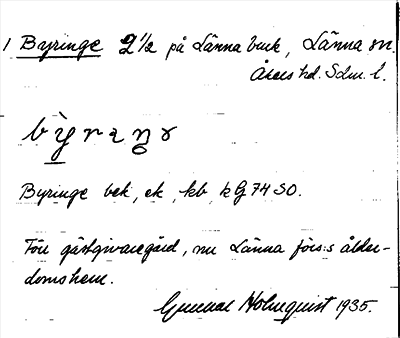 1 Byringe 2 1/2 på Länna bruk, Länna sn.
Åkers hd. Sdm. l.
Byringe bek, ek, kb, kG 74 SO.
Förr gästgivaregård, nu Länna förs:s ålder-
domshem.
Gunnar Holmquist 1935.